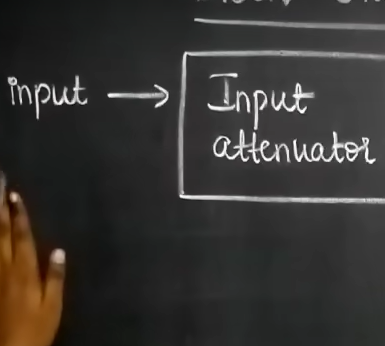 input → Input
attenuator